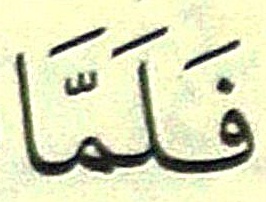 فَلَمَّا